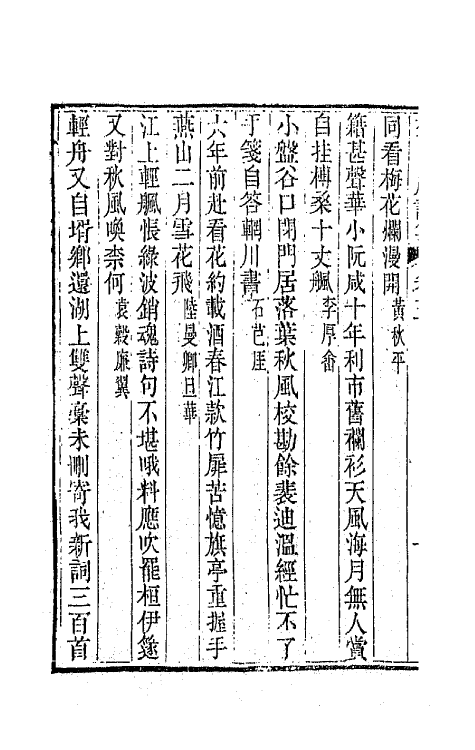 同看梅花爛漫開黃秋平
籍甚聲華小阮咸十年利市舊襴衫天風海月無人賞
自挂槫桑十丈颿李厚畬
小盤谷口閉門居落葉秋風校勘餘裴迪溫經忙不了
于箋自答輞川書石芭厓
六年前赴看花約載酒春江款竹扉苦憶旗亭重握手
燕山二月雪花飛陸曼卿旦華
江上輕颿悵綠波銷魂詩句不堪哦料應吹罷桓伊篴
又對秋風喚柰何袁穀廉翼
輕舟又自壻鄉還湖上雙聲藁未刪寄我新詞三百首